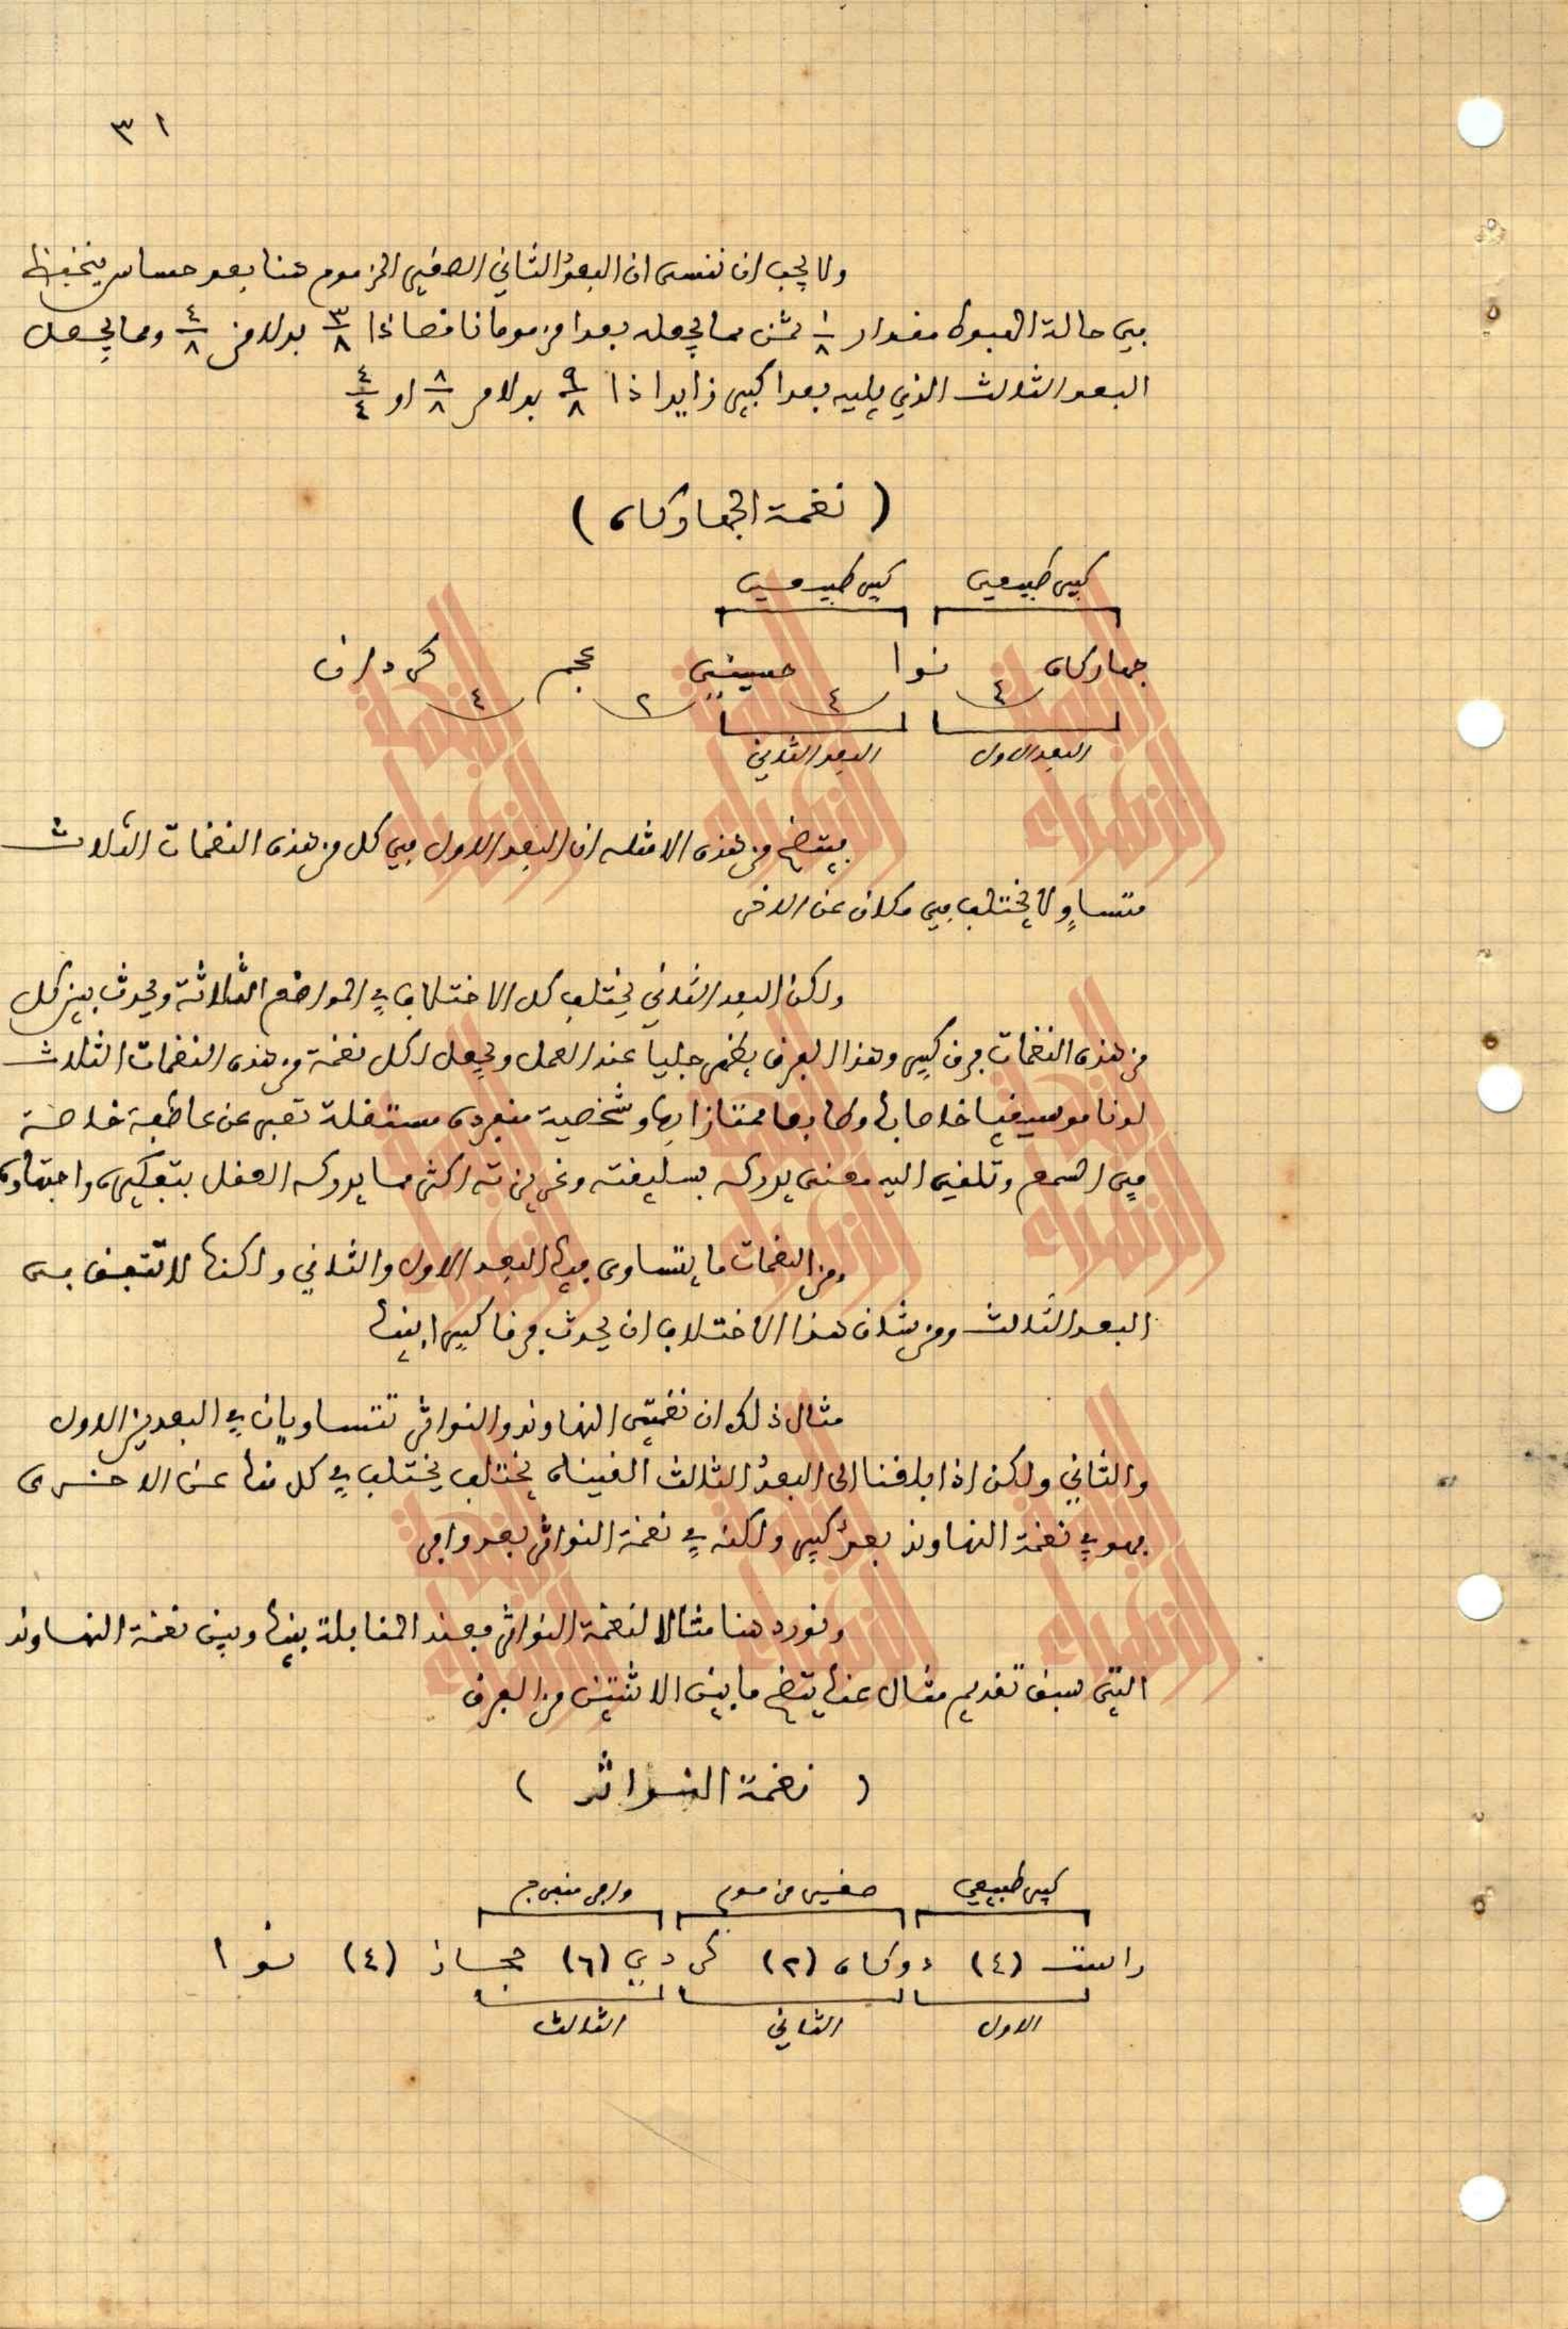 ٣١
ولا يجب ان ننسى ان البعد الثاني الصغير المزموم هنا بعد حساس ينخفظ
في حالة الهبوط مقدار ١/٨ ثمن مما يجعله بعدا مزموما ناقصا ذا ٣/٨ بدلا من ٤/٨ ومما يجعل
البعد الثالث الذي يليه بعدا كبير زايدا ذا ٩/٨ بدلا من ٨/٨ او ٤/٤
( نغمة الجهاركاه )
كبير طبيعي كبير طبيعي
جهاركاه ٤ نوا ٤ حسيني ٢ عجم ٤ كردان
البعد الاول البعد الثاني
يتضح من هذه الامثله ان البعد الاول في كل من هذه النغمات الثلاث
متساوٍ لا يختلف في مكان عن الاخر
ولكن البعد الثاني يختلف كل الاختلاف في المواضع الثلاثة ويحدث بين كل
من هذه النغمات فرق كبير وهذا الفرق يظهر جلياً عند العمل ويجعل لكل نغمة من هذه النغمات الثلاث
لونا موسيقيا خاصا بها وطابعا ممتازا بها وشخصية منفردة مستقلة تعبر عن عاطفة خاصة
في السمع وتلقي اليه معنى يدركه بسليقته وغريزته اكثر مما يدركه العقل بتفكيره واجتهاده
ومن النغمات ما يتساوى فيها البعد الاول والثاني ولكنها لا تتفق في
البعد الثالث ومن شان هذا الاختلاف ان يحدث فرقا كبيرا بينها
مثال ذلك ان نغمتي النهاوند والنواثر تتساويان في البعدين الاول
والثاني ولكن اذا بلغنا الى البعد الثالث الفيناه يختلف يختلف في كل منها عن الاخرى
فهو في نغمة النهاوند بعد كبير ولكنه في نغمة النواثر بعد وافر
ونورد هنا مثالا لنغمة النواثر فعند المقابلة بينها وبين نغمة النهاوند
التي سبق تقديم مثال عنها يتضح ما بين الاثنتين من الفرق
( نغمة النواثر )
كبير طبيعي صغير مزموم وافر منفرج
راست (٤) دوكاه (٢) كردي (٦) حجاز (٤) نوا
الاول الثاني الثالث